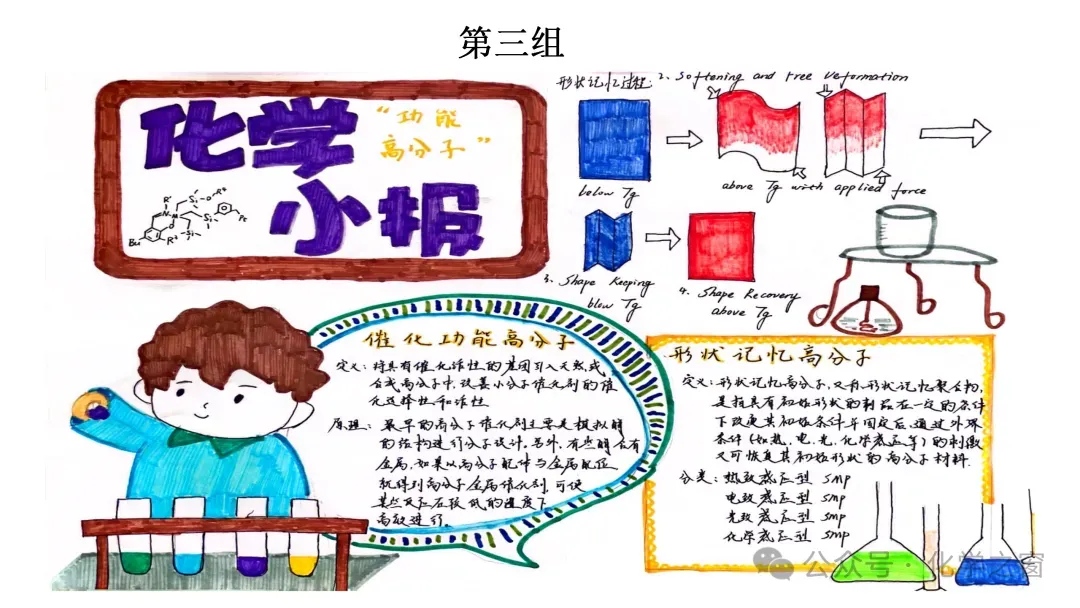 第三组
化学
小报
“功能
高分子”
形状记忆过程:
2. Softening and Free Deformation
below Tg
above Tg with applied force
3. Shape Keeping
blow Tg
4. Shape Recovery
above Tg
催化功能高分子
定义:将具有催化活性的基团引入天然或
合成高分子中,改善小分子催化剂的催
化选择性和活性.
原理:最早的高分子催化剂主要是模拟酶
的结构进行分子设计。另外,有些酶含有
金属,如果以高分子配体与金属配位
就得到高分子金属催化剂,可使
某些反应在较低的温度下
高效进行。
形状记忆高分子
定义:形状记忆高分子,又称形状记忆聚合物,
是指具有初始形状的制品在一定的条件
下改变其初始条件并固定后,通过外界
条件(如热、电、光、化学感应等)的刺激
又可恢复其初始形状的高分子材料.
分类:热致感应型 SMP
电致感应型 SMP
光致感应型 SMP
化学感应型 SMP
公众号·化学之窗